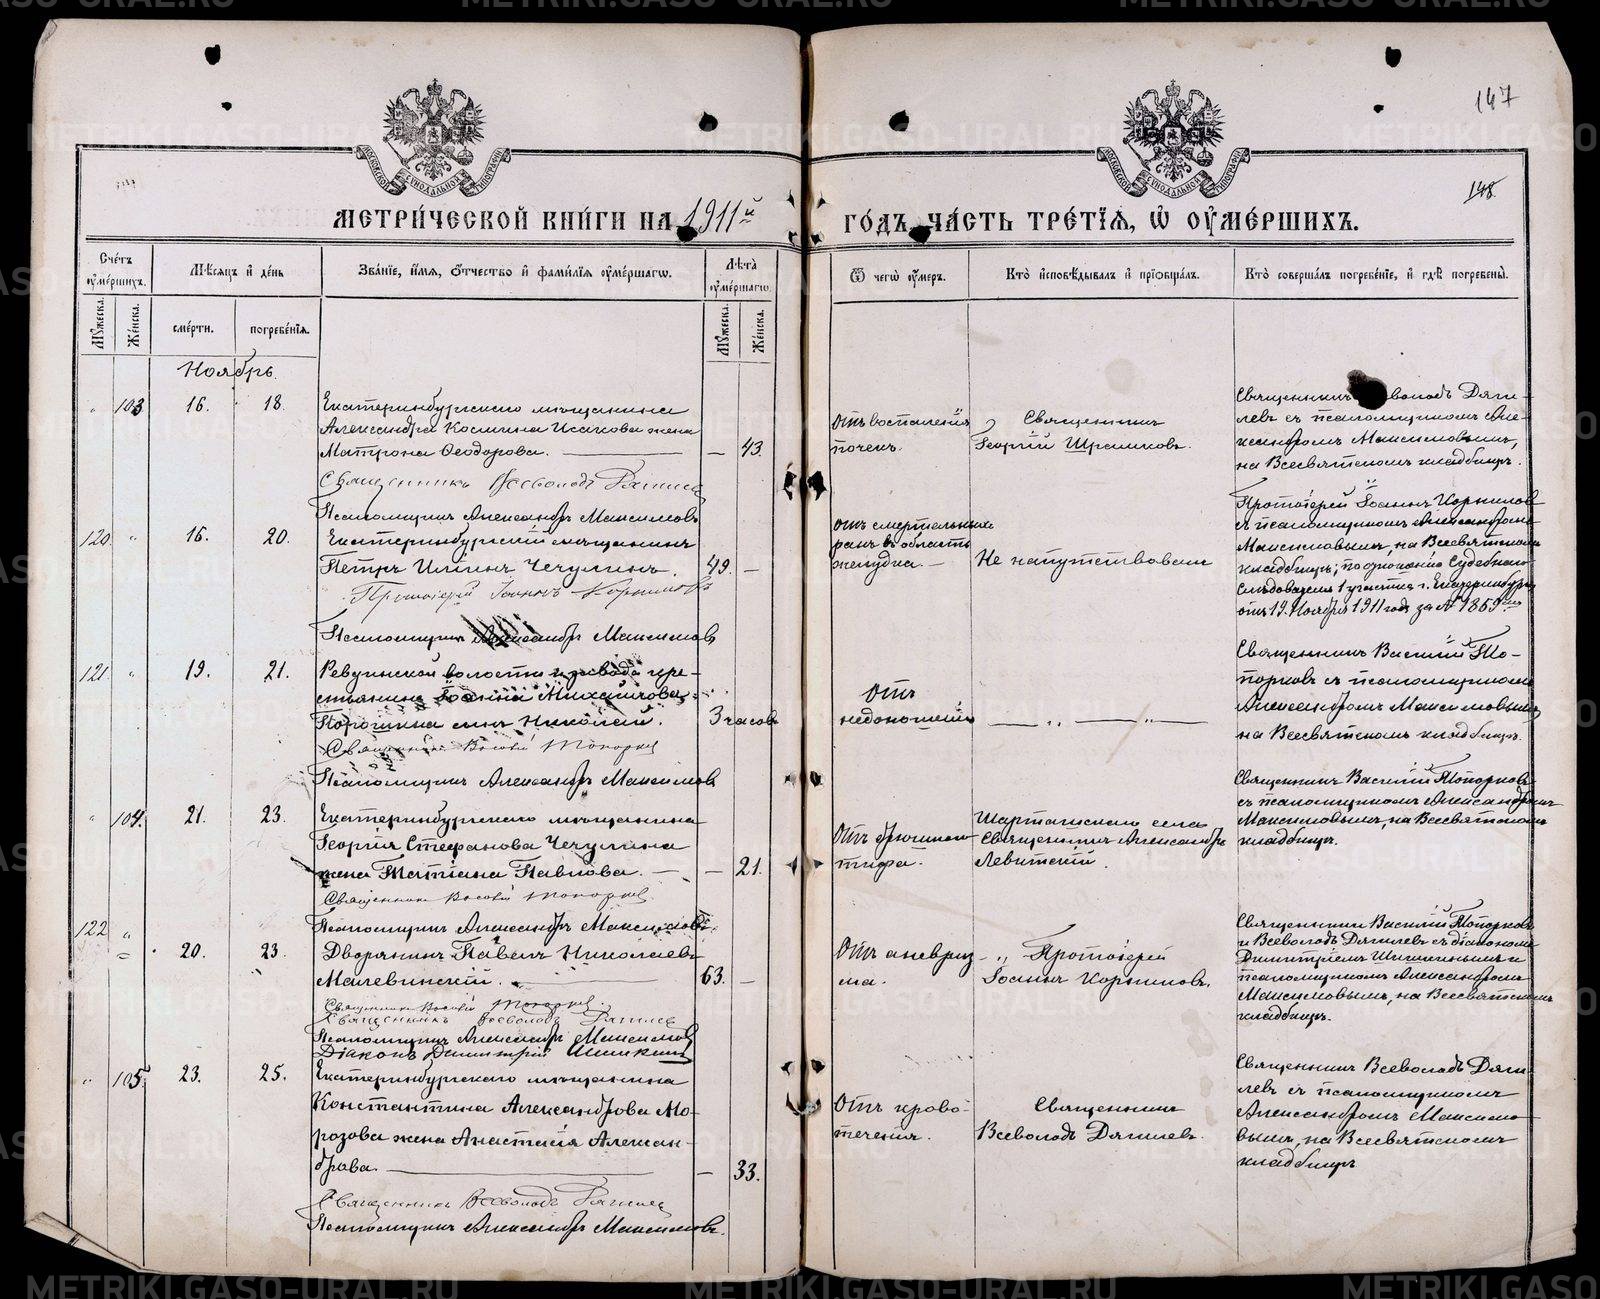 147
148.
МЕТРИ́ЧЕСКОЙ КНИ́ГИ НА 1911й ГО́ДЪ, ЧА́СТЬ ТРЕ́ТІЯ, Ѡ҆ ОУ҆МЕ́РШИХЪ.
Сче́тъ оу҆ме́ршихъ.
Му́жеска.
Же́нска.
Мѣ́сяцъ и҆ де́нь
сме́рти.
погребе́нія.
Зва́ніе, и҆́мя, о҆́тчество и҆ фами́лія оу҆ме́ршагѡ.
Лѣ́та оу҆ме́ршагѡ.
Му́жеска.
Же́нска.
Ѿ чегѡ̀ оу҆́меръ.
Кто̀ и҆сповѣ́дывалъ и҆ прїѡбща́лъ.
Кто̀ соверша́лъ погребе́ніе, и҆ гдѣ̀ погребены̀.
Ноябрь.
" 103 16. 18.
Екатеринбургскаго мѣщанина
Александра Космина Исакова жена
Матрона Ѳеодорова. — 43.
Священникъ Всеволодъ Дягилев
Псаломщикъ Александръ Максимовъ
Отъ воспаленія
почекъ.
Священникъ
Георгій Шрамковъ.
Священникъ Всеволодъ Дяги-
левъ съ псаломщикомъ Але-
ксандромъ Максимовымъ,
на Всесвятскомъ кладбищѣ.
120 " 16. 20.
Екатеринбургскій мѣщанинъ
Петръ Илiинъ Чечулинъ. 49. —
Протоіерей Іоаннъ Корниловъ
Псаломщикъ Александръ Максимовъ
Отъ смертельныхъ
ранъ въ область
желудка. —
Не напутствованъ
Протоіерей Іоаннъ Корниловъ
съ псаломщикомъ Александромъ
Максимовымъ, на Всесвятскомъ
кладбищѣ; по отношенію Судебнаго
Слѣдователя 1 участка г. Екатеринбурга
отъ 19. Ноября 1911 года за № 1859.
121 " 19. 21.
Ревдинской волости и завода кре-
стьянина Іоанна Михайлова
Порошина сынъ Николай. 3 часов
Священникъ Василій Топорков
Псаломщикъ Александръ Максимов
Отъ
недоношенія
— " — " —
Священникъ Василій То-
порковъ съ псаломщикомъ
Александромъ Максимовымъ
на Всесвятскомъ кладбищѣ.
" 104. 21. 23.
Екатеринбургскаго мѣщанина
Георгія Стефанова Чечулина
жена Татіана Павлова. — — 21.
Священникъ Василій Топорков
Псаломщикъ Александръ Максимовъ.
Отъ брюшнаго
тифа.
Шарташскаго села
Священникъ Александръ
Левитскій.
Священникъ Василій Топорковъ
съ псаломщикомъ Александромъ
Максимовымъ, на Всесвятскомъ
кладбищѣ.
122 " 20. 23.
Дворянинъ Павелъ Николаевъ
Малевинскій. 63. —
Священникъ Василій Топорков.
Священникъ Всеволодъ Дягилев
Псаломщикъ Александръ Максимов
Діаконъ Димитрій Шишкинъ
Отъ аневриз-
ма.
" Протоіерей
Іоаннъ Корниловъ.
Священники Василій Топорковъ
и Всеволодъ Дягилевъ съ діакономъ
Димитріемъ Шишкинымъ и
псаломщикомъ Александромъ
Максимовымъ, на Всесвятскомъ
кладбищѣ.
" 105. 23. 25.
Екатеринбургскаго мѣщанина
Константина Александрова Мо-
розова жена Анастасія Алексан-
дрова. — — 33.
Священникъ Всеволодъ Дягилев
Псаломщикъ Александръ Максимовъ.
Отъ крово-
теченія.
Священникъ
Всеволодъ Дягилевъ.
Священникъ Всеволодъ Дяги-
левъ съ псаломщикомъ
Александромъ Максимо-
вымъ, на Всесвятскомъ
кладбищѣ
METRIKI.GASO-URAL.RU